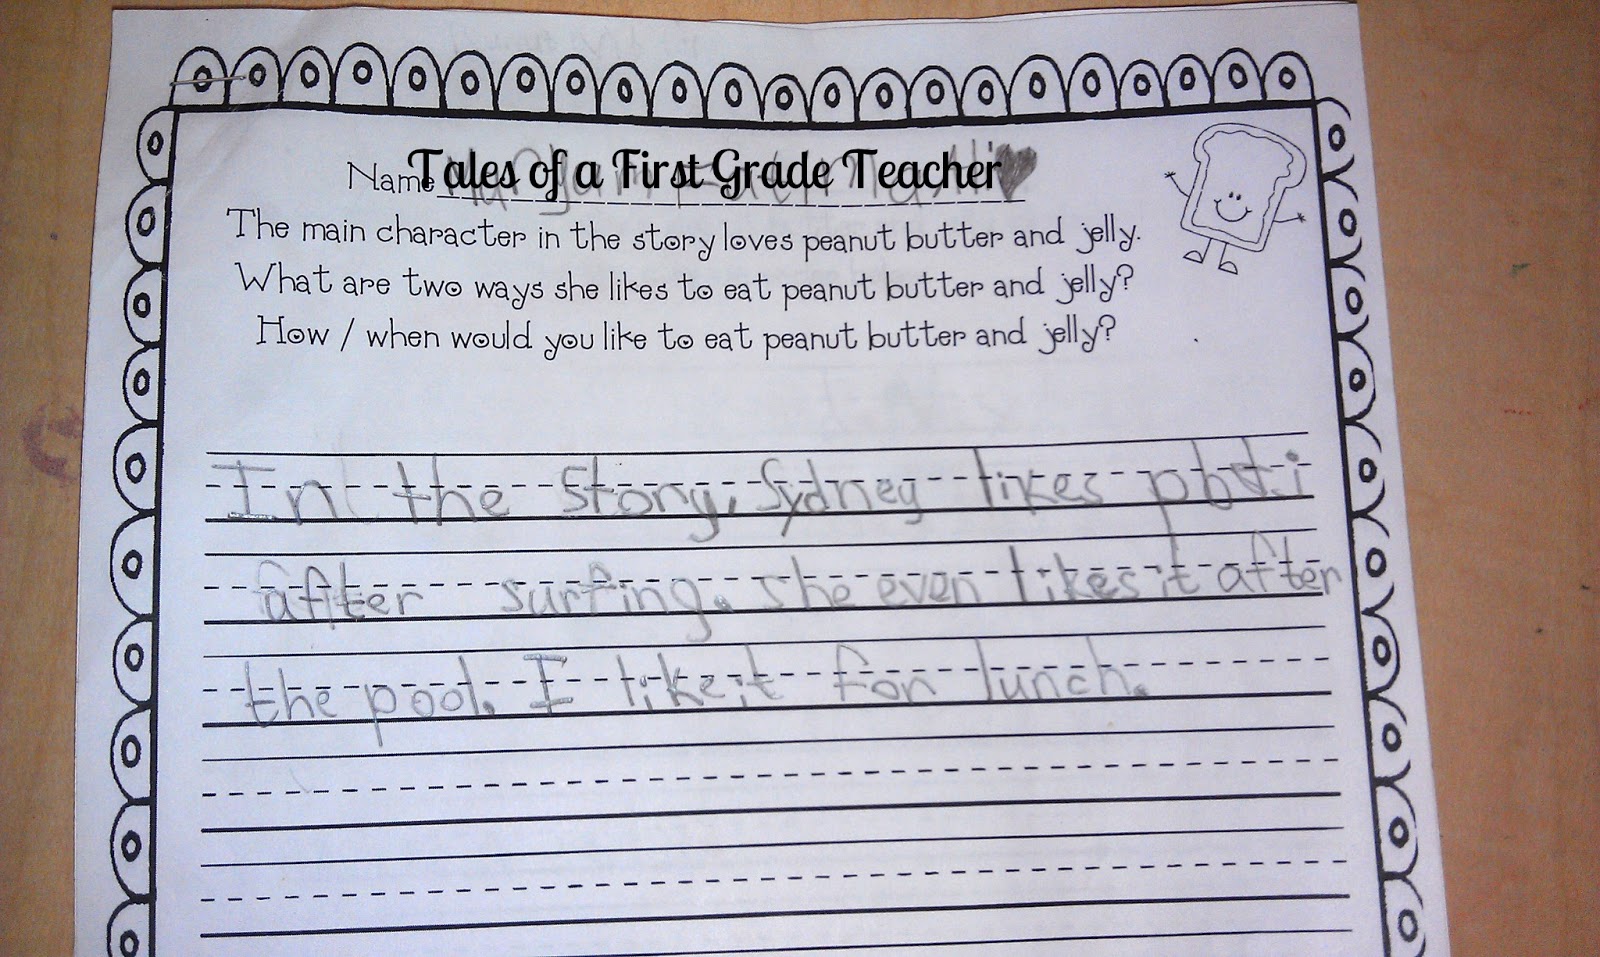 Name Tales of a First Grade Teacher
The main character in the story loves peanut butter and jelly.
What are two ways she likes to eat peanut butter and jelly?
How / when would you like to eat peanut butter and jelly?
In the story, Sydney likes pb&j
after surfing. she even likes it after
the pool. I like it for lunch.